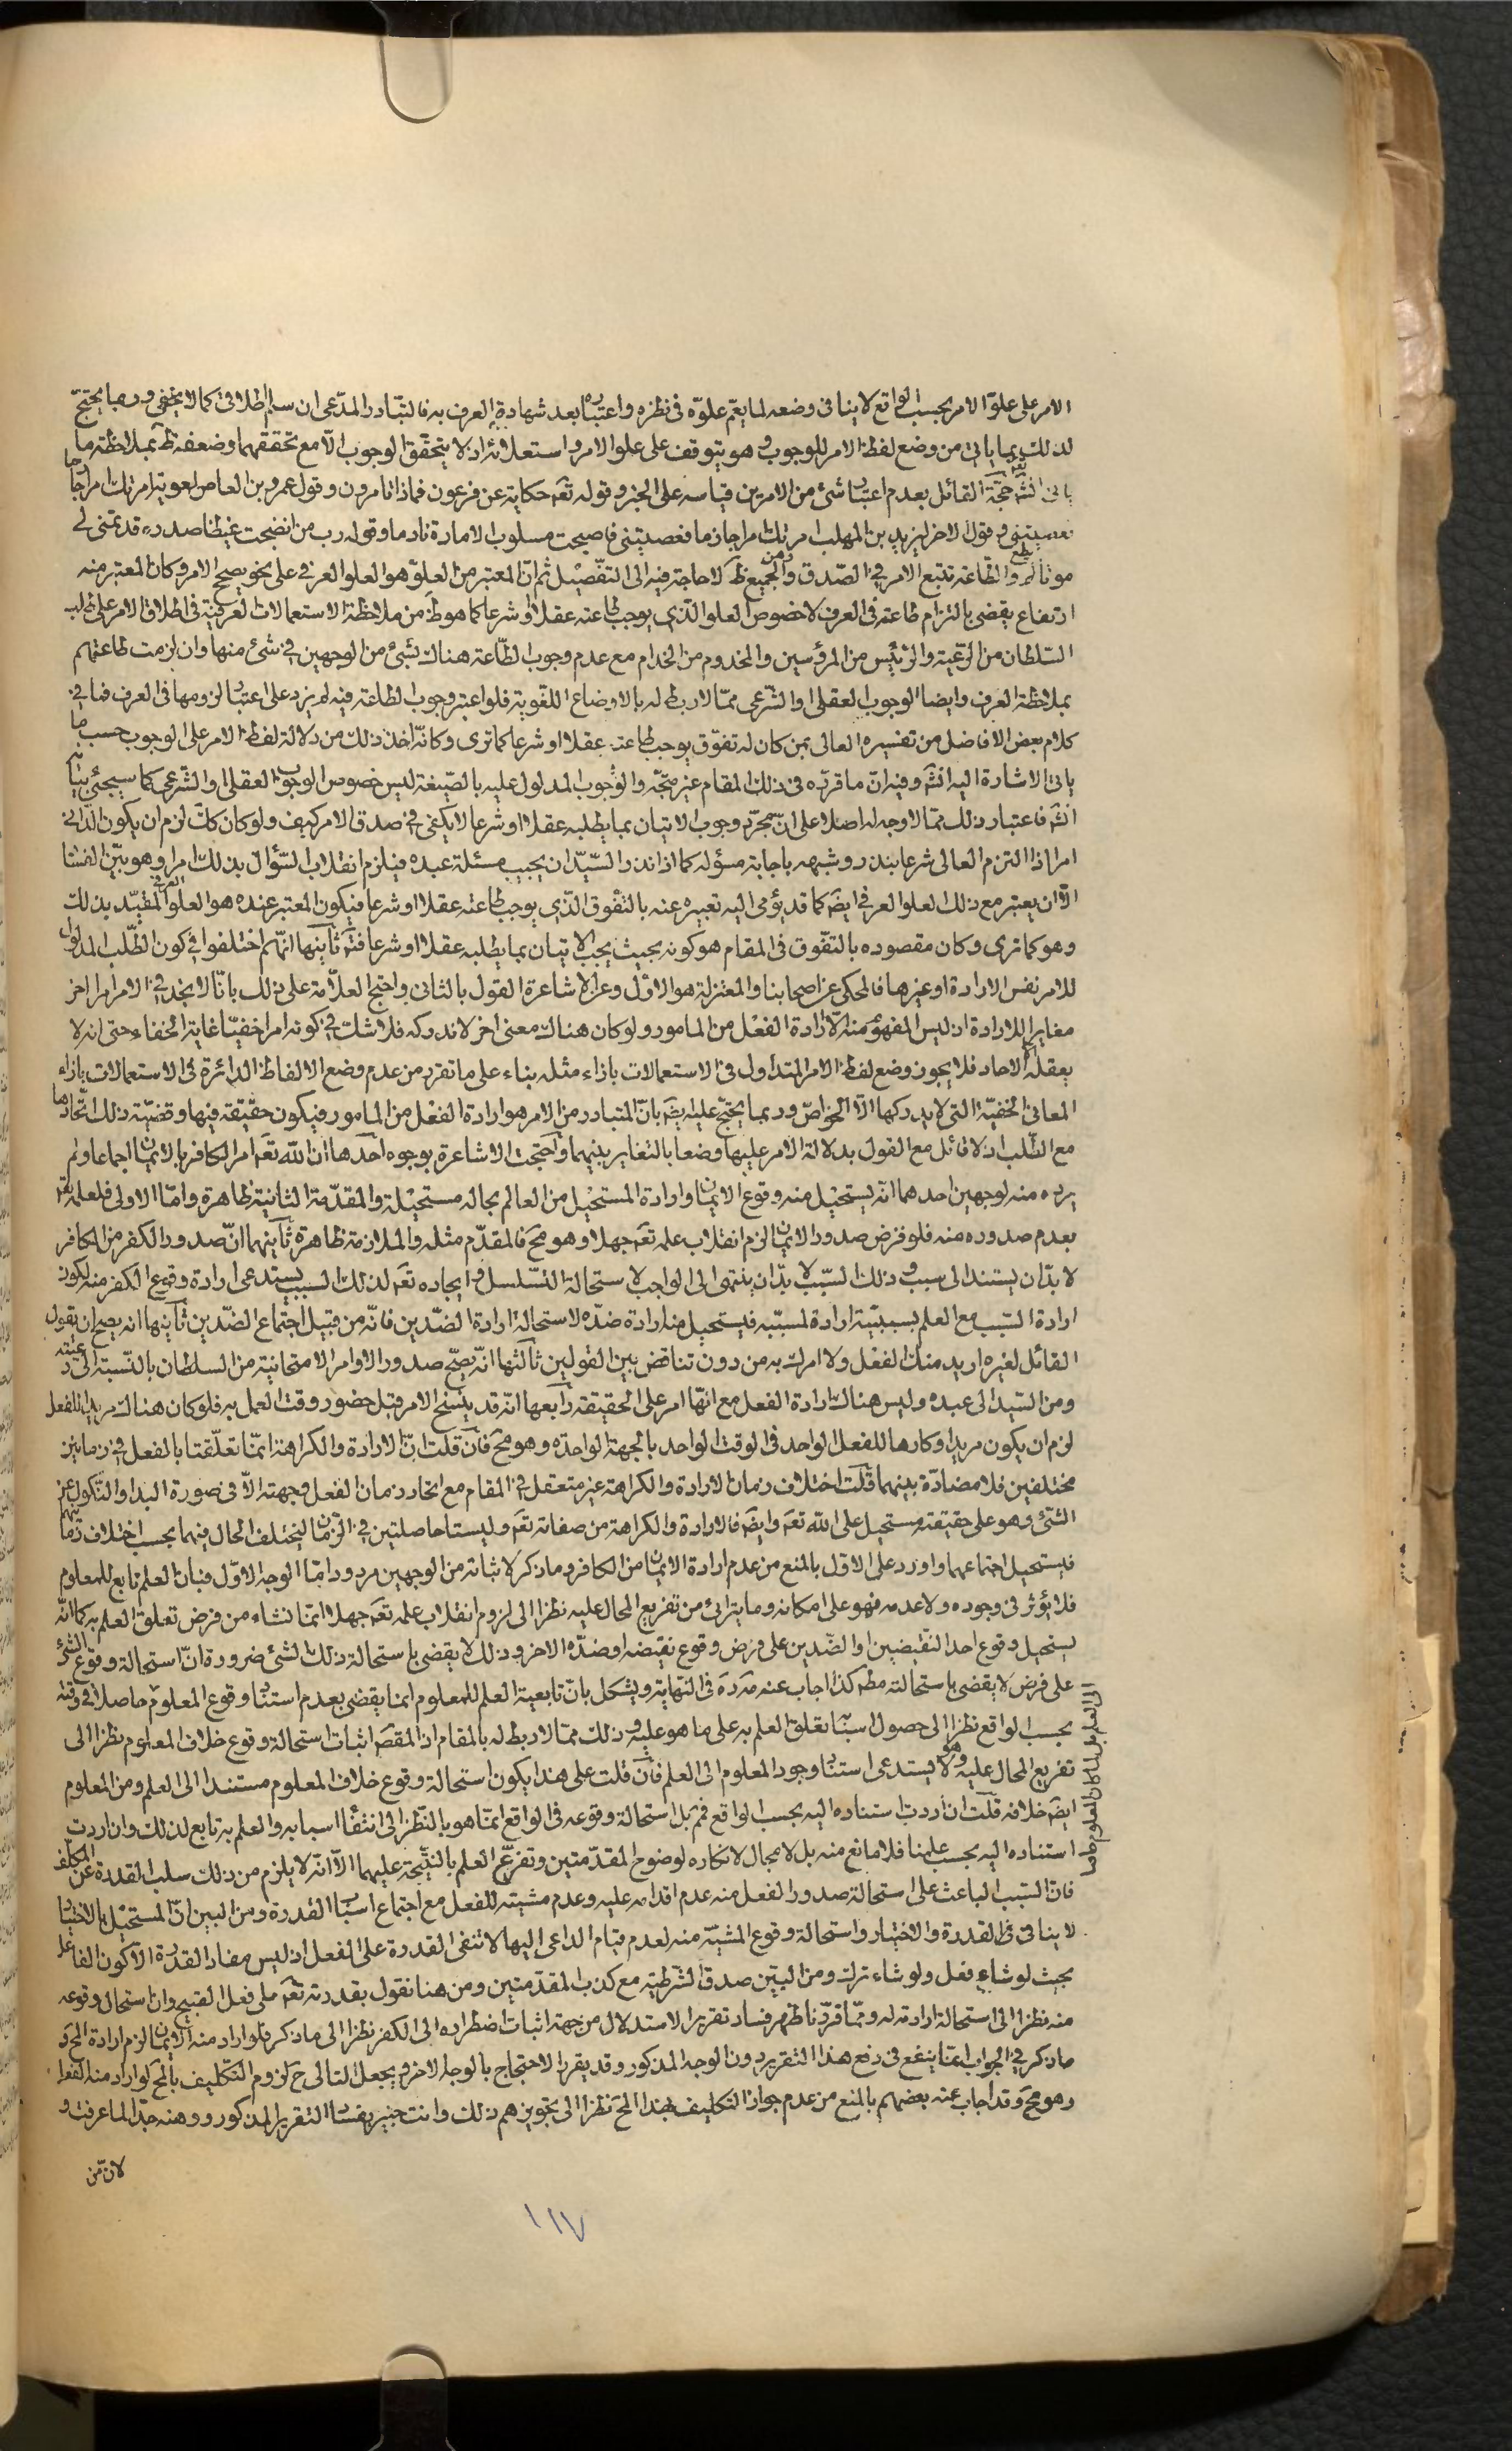 الامر على علوّ الامر بحسب الواقع لا ينافى وضعه لما يعمّ علوّه فى نظره واعتباره بعد شهادة العرف به فالتبادر المدّعى ان سلم اطلاقى كما لا يخفى وربما يحتجّ
لذلك بما ياتى من وضع لفظ الامر للوجوب وهو يتوقف على علو الامر واستعلائه اذ لا يتحقق الوجوب الّا مع تحققهما وضعفه ظَ بملاحظة ما
ياتى انشَ حجّة القائل بعدم اعتبار شئ من الامرين قياسه على الخبر وقوله تعَ حكاية عن فرعون فماذا تامرون وقول عمرو بن العاص لمعوية امرتك امرا جازما
فعصيتنى وقول الاخر ليزيد بن المهلب امرتك امرا جازما فعصيتنى فاصبحت مسلوب الامارة نادما وقوله رب من انضجت غيظا صدره قد تمنى لى
موتا لم يطع والطاعة تتبع الامر فى الصّدق والجميع ظَ لا حاجة فيه الى التفصيل ثم انّ المعتبر من العلوّ هو العلو العرفى على نحو يصحّ الامر وكان المعتبر منه
ارتفاع يقضى بالتزام طاعته فى العرف لا خصوص العلو الّذى يوجب طاعته عقلا او شرعا كما هو ظَ من ملاحظة الاستعمالات العرفية فى اطلاق الامر على طلب
السّلطان من الرّعية والرّئيس من المرؤسين والمخدوم من الخدام مع عدم وجوب الطّاعة هناك بشئ من الوجهين فى شئ منها وان لزمت طاعتهم
بملاحظة العرف وايضا الوجوب العقلى او الشّرعى ممّا لا ربط له بالاوضاع اللّغوية فلو اعتبر وجوب الطاعة فيه لم يزد على اعتبار لزومها فى العرف فما فى
كلام بعض الافاضل من تفسيره العالى بمن كان له تفوّق يوجب طاعته عقلا او شرعا كما ترى وكانّه اخذ ذلك من دلالة لفظ الامر على الوجوب حسب ما
ياتى الاشارة اليه انشَ وفيه انّ ما قرّره فى ذلك المقام غير متّجه والوجوب المدلول عليه بالصّيغة ليس خصوص الوجوب العقلى او الشّرعى كما سيجئ بيانه
انشَ فاعتبار ذلك ممّا لا وجه له اصلا على انّ مجرّد وجوب الاتيان بما يطلبه عقلا او شرعا لا يكفى فى صدق الامر كيف ولو كان كك لزم ان يكون الدّانى
امرا اذا التزم العالى شرعا بنذر وشبهه باجابة مسؤله كما اذا نذر السّيّد ان يجيب مسئلة عبده فيلزم انقلاب السّؤال بذلك امرا وهو بيّن الفساد
الّا ان يعتبر مع ذلك العلو العرفى ايضَ كما قد يؤمى اليه تعبيره عنه بالتفوق الّذى يوجب طاعته عقلا او شرعا فيكون المعتبر عنده هو العلو العرفى المقيّد بذلك
وهو كما ترى وكان مقصوده بالتفّوق فى المقام هو كونه بحيث يجب الاتيان بما يطلبه عقلا او شرعا فتَ ثانيها انّهم اختلفوا فى كون الطّلب المدلول
للامر نفس الارادة او غيرها فالمحكى عن اصحابنا والمعتزلة هو الاوّل وعن الاشاعرة القول بالثانى واحتج العلّامة على ذلك بانّا لا نجد فى الامر امرا اخر
مغايرا للارادة اذ ليس المفهوم منه الّا ارادة الفعل من المامور ولو كان هناك معنى اخر لا ندركه فلا شك فى كونه امرا خفيّا غاية الخفاء حتى انه لا
يعقله الّا الاحاد فلا يجوز وضع لفظ الامر المتداول فى الاستعمالات بازاء مثله بناء على ما تقرر من عدم وضع الالفاظ الدائرة فى الاستعمالات بازاء
المعانى الخفيّة التى لا يدركها الّا الخواصّ وربما يحتجّ عليه ايضَ بانّ المتبادر من الامر هو ارادة الفعل من المامور فيكون حقيقة فيها وقضيّة ذلك اتّحادها
مع الطّلب اذ لا قائل مع القول بدلالة الامر عليها وضعا بالتغاير بينهما واحتجت الاشاعرة بوجوه احدها ان اللّه تعَ امر الكافر بالايمان اجماعا ولم
يرده منه لوجهين احدهما انّه يستحيل منه وقوع الايمان وارادة المستحيل من العالم بحاله مستحيلة والمقدّمة الثانية ظاهرة وامّا الاولى فلعلمه تعَ
بعدم صدوره منه فلو فرض صدور الايمان لزم انقلاب علمه تعَ جهلا وهو محَ فالمقدّم مثله والملازمة ظاهرة ثانيهما انّ صدور الكفر من الكافر
لا بدّ ان يستند الى سبب وذلك السّبب لا بدّ ان ينتهى الى الواجب لاستحالة التسلسل وايجاده تعَ لذلك السبب يستدعى ارادة وقوع الكفر منه لكون
ارادة السّبب مع العلم بسببيّته ارادة لمسبّبه فيستحيل منه ارادة ضدّه لاستحالة ارادة الضّدين فانّه من قبيل اجتماع الضّدين ثانيها انه يصح ان يقول
القائل لغيره اريد منك الفعل ولا امرك به من دون تناقض بين القولين ثالثها انّه يصحّ صدور الاوامر الامتحانية من السلطان بالنّسبة الى رعيته
ومن السّيد الى عبده وليس هناك ارادة الفعل مع انّها امر على الحقيقة رابعها انّه قد ينسخ الامر قبل حضور وقت العمل به فلو كان هناك مريدا للفعل
لزم ان يكون مريدا وكارها للفعل الواحد فى الوقت الواحد بالجهة الواحدة وهو محَ فان قلت انّ الارادة والكراهة انمّا تعلّقتا بالفعل فى زمانين
مختلفين فلا مضادّة بينهما قلت اختلاف زمان الارادة والكراهة غير متعقل فى المقام مع اتحاد زمان الفعل وجهته الّا فى صورة البدا والنّكول عن
الشّئ وهو على حقيقته مستحيل على اللّه تعَ وايضَ فالارادة والكراهة من صفاته تعَ وليستا حاصلتين فى الزّمان ليختلف الحال فيهما بحسب اختلاف زمانهم
فيستحيل اجتماعهما واورد على الاوّل بالمنع من عدم ارادة الايمان من الكافر وما ذكر لاثباته من الوجهين مردود امّا الوجه الاوّل فبان العلم تابع للمعلوم
فلا يؤثر فى وجوده ولا عدمه فهو على امكانه وما يترائى من تفريع المحال عليه نظرا الى لزوم انقلاب علمه تعَ جهلا انمّا نشاء من فرض تعلق العلم به كما انّه
يستحيل وقوع احد النّقيضين او الضّدين على فرض وقوع نقيضه او ضدّه الاخر وذلك لا يقضى باستحالة ذلك الشئ ضرورة انّ استحالة وقوع الشئ
على فرض لا يقضى باستحالته مطَ كذا اجاب عنه فى النّهاية ويشكل بانّ تابعية العلم للمعلوم انما يقضى بعدم استناد وقوع المعلوم حاصلا فى وقته
بحسب الواقع نظرا الى حصول اسبابه تعلق العلم به على ما هو عليه وذلك ممّا لا ربط له بالمقام اذ المقصَ اثبات استحالة وقوع خلاف المعلوم نظرا الى
تفريع المحال عليه وهو لا يستدعى استناد وجود المعلوم الى العلم فان قلت على هذا يكون استحالة وقوع خلاف المعلوم مستندا الى العلم ومن المعلوم
ايضَ خلافه قلت ان اردت استناده اليه بحسب الواقع فمَ بل استحالة وقوعه فى الواقع انمّا هو بالنظر الى انتفاء اسبابه والعلم به تابع لذلك وان اردت
استناده اليه بحسب علمنا فلا مانع منه بل لا مجال لانكاره لوضوح المقدّمتين وتفرّع العلم بالنتيجة عليهما الّا انّه لا يلزم من ذلك سلب القدرة عن المكلف
فانّ السّبب الباعث على استحالة صدور الفعل منه عدم اقدامه عليه وعدم مشيته للفعل مع اجتماع اسباب القدرة ومن البين انّ المستحيل بالاختيار
لا ينافى القدرة والاختيار واستحالة وقوع المشيّة منه لعدم قيام الداعى اليها لا تنفى القدرة على الفعل اذ ليس مفاد القدرة الّا كون الفاعل
بحيث لو شاء فعل ولو شاء ترك ومن البيّن صدق الشّرطية مع كذب المقدّمتين ومن هنا نقول بقدرته تعَ على فعل القبيح وان استحال وقوعه
منه نظرا الى استحالة ارادته له وممّا قرّرنا ظهر فساد تقرير الاستدلال من جهة اثبات اضطراره الى الكفر نظرا الى ما ذكر فلو اراد منه الايمان لزم ارادة المحَ و
ما ذكر فى الجواب انمّا ينفع فى دفع هذا التقرير دون الوجه المذكور وقد يقرر الاحتجاج بالوجه الاخر ويجعل التالى ح لزوم التّكليف بالمحَ لو اراد منه الفعل
وهو محَ وقد اجاب عنه بعضهم بالمنع من عدم جواز التكليف بهذا المحَ نظرا الى تجويزهم ذلك وانت خبير بفساد التقرير المذكور ووهنه جدّا لما عرفت و
لان من
١١٧